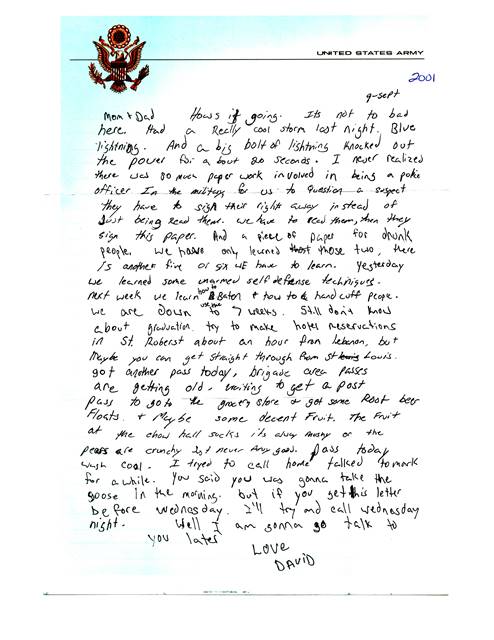 UNITED STATES ARMY
2001
9-Sept
Mom & Dad Hows it going. Its not to bad
here. Had a Really cool storm last night. Blue
lightning. And a big bolt of lightning knocked out
the power for a bout 20 seconds. I never realized
there was so much paper work involved in being a police
officer In the military for us to question a suspect
they have to sign their rights away instead of
Just being Read them. we have to read them, then they
sign this paper. And a piece of paper for drunk
people, we have only learned those two, there
Is another five or six WE have to learn. Yesterday
we learned some unarmed self defense techniques.
next week we learn how to use the Baton & how to hand cuff peope.
we are down to 7 weeks. Still don't know
about graduation. try to make hotel reservations
in St. Roberst about an hour from Lebanon, but
Maybe you can get straight through from St Louis.
got another pass today, brigade area passes
are getting old. waiting to get a post
pass to go to the grocery store & get some Root beer
Floats. & Maybe some decent Fruit. The Fruit
at the chow hall sucks its alway mushy or the
pears are crunchy Just never Any good. Pass today
was cool. I tryed to call home talked to mark
for a while. You said you was gonna take the
goose In the morning. but if you get this letter
before wednesday. I'll try and call wednesday
night. Well I am gonna go talk to
you later
LOVE
DAVID